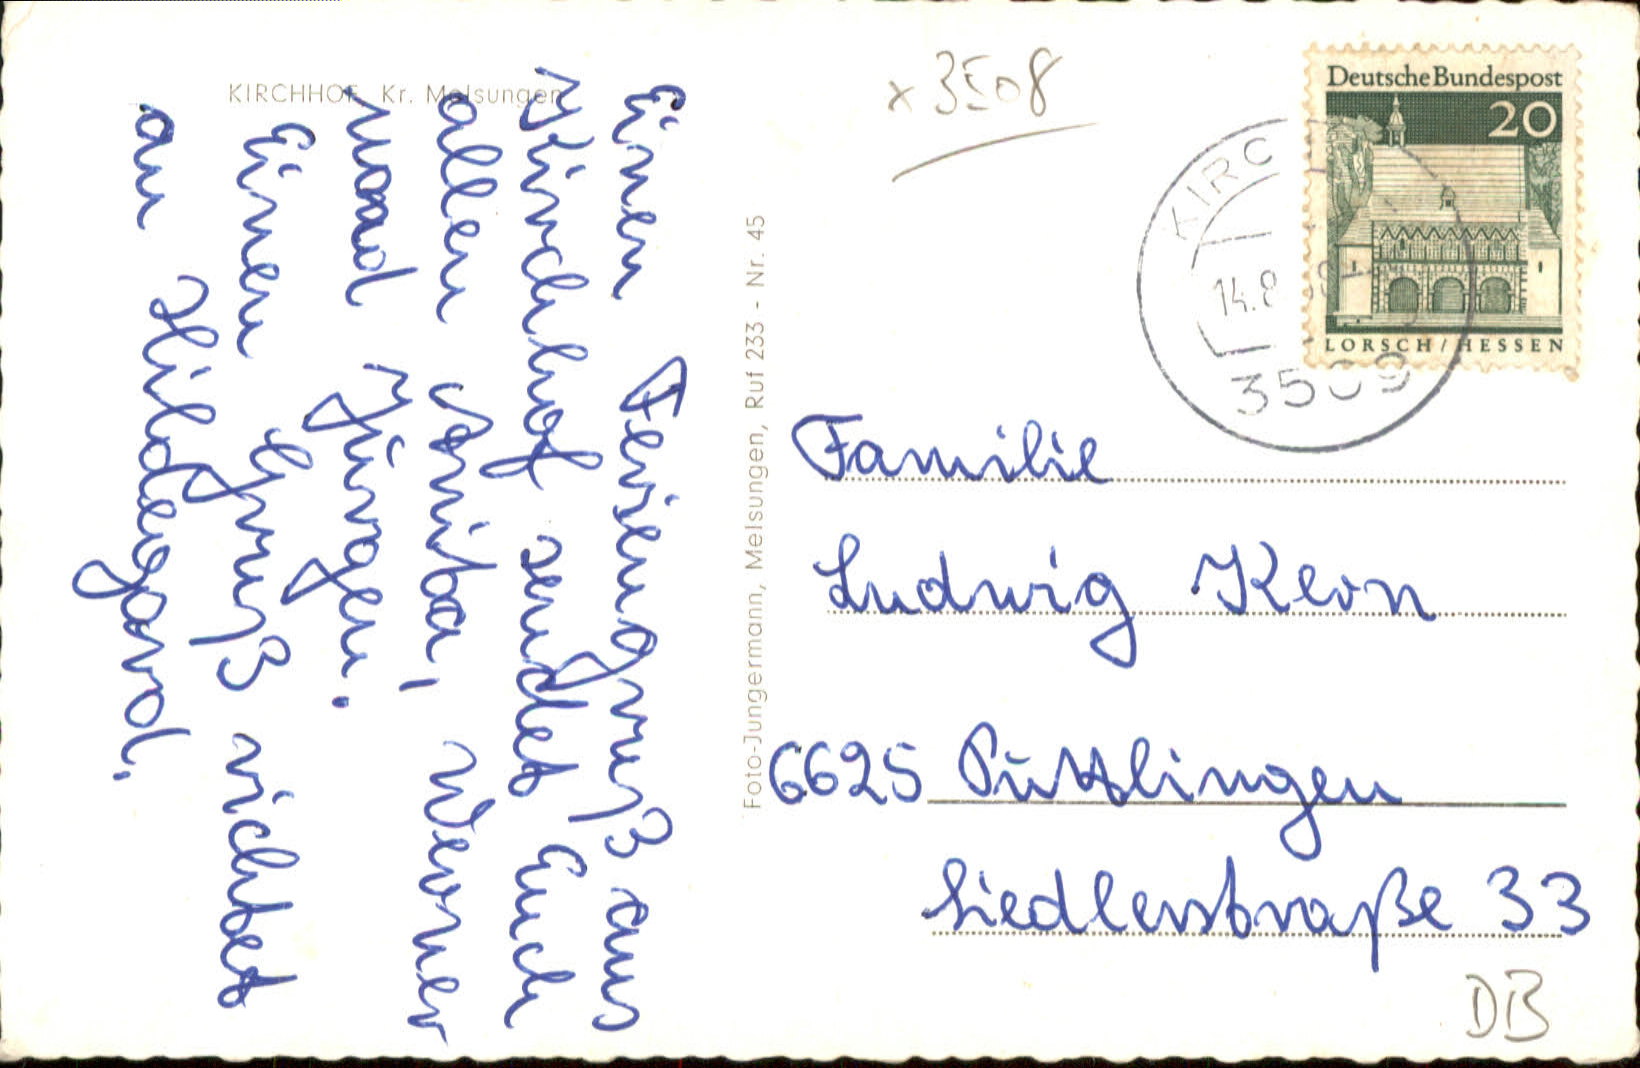 KIRCHHOF, Kr. Melsungen
Einen Feriengruß aus
Kirchhof sendet Euch
allen Anita, Werner
und Jürgen.
Einen Gruß richtet
an Hildegard.
Foto-Jungermann, Melsungen, Ruf 233 - Nr. 45
x 3508
Deutsche Bundespost
20
LORSCH/HESSEN
KIRC
14.8
3509
Familie
Ludwig Kern
6625 Püttlingen
Siedlerstraße 33
DB